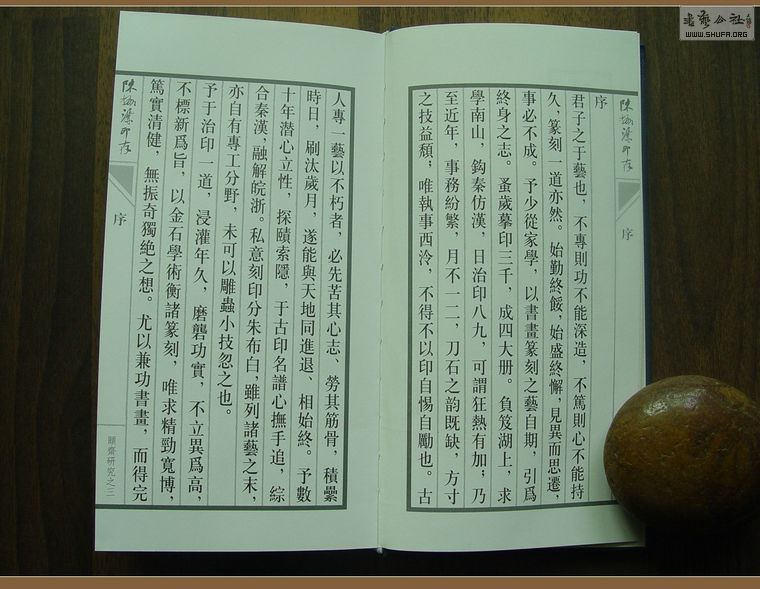 書藝公社
WWW.SHUFA.ORG
序
序
君子之于藝也，不專則功不能深造，不篤則心不能持
久，篆刻一道亦然。始勤終餒，始盛終懈，見異而思遷，
事必不成。予少從家學，以書畫篆刻之藝自期，引爲
終身之志。蚤歲摹印三千，成四大册。負笈湖上，求
學南山，鈎秦仿漢，日治印八九，可謂狂熱有加；乃
至近年，事務紛繁，月不一二，刀石之韵既缺，方寸
之技益頹，唯執事西泠，不得不以印自惕自勵也。古
人專一藝以不朽者，必先苦其心志、勞其筋骨，積纍
時日，刷汰歲月，遂能與天地同進退、相始終。予數
十年潜心立性，探賾索隱，于古印名譜心撫手追，綜
合秦漢，融解皖浙。私意刻印分朱布白，雖列諸藝之末，
亦自有專工分野，未可以雕蟲小技忽之也。
予于治印一道，浸灌年久，磨礱功實，不立異爲高，
不標新爲旨，以金石學術衡諸篆刻，唯求精勁寬博，
篤實清健，無振奇獨絶之想。尤以兼功書畫，而得完
序
頤齋研究之三